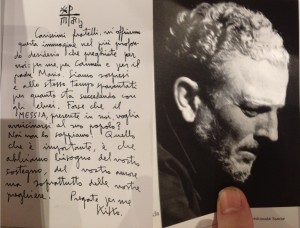 Carissimi fratelli, vi offriamo
questa immagine nel più profondo
desiderio che preghiate per
noi: per me, per Carmelo e per il
padre Mario. Siamo sorpresi
e allo stesso tempo spaventati
per quanto sta succedendo con
gli ebrei. Forse che il
MESSIA, presente in noi, voglia
avvicinarsi al suo popolo?
Noi non lo sappiamo! Quello
che è importante, è che
abbiamo bisogno del vostro
sostegno, del vostro amore
ma soprattutto delle vostre
preghiere.
Pregate per me
Kiko